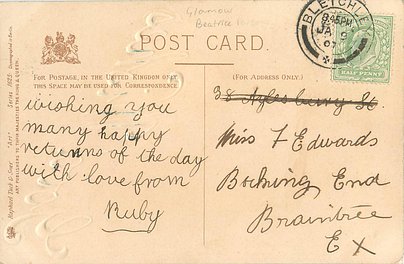 Glamow
Beatrice
BLETCHLE
8.45PM
JA 9
07
HALF PENNY
POST CARD.
FOR POSTAGE, IN THE UNITED KINGDOM ONLY,
THIS SPACE MAY BE USED FOR CORRESPONDENCE
(FOR ADDRESS ONLY.)
Raphael Tuck & Sons' "Art" Series 1825
ART PUBLISHERS TO THEIR MAJESTIES THE KING & QUEEN.
wishing you
many happy
returns of the day
with love from
Ruby
38 Aylesbury St.
Miss F Edwards
Bocking End
Braintree
EX